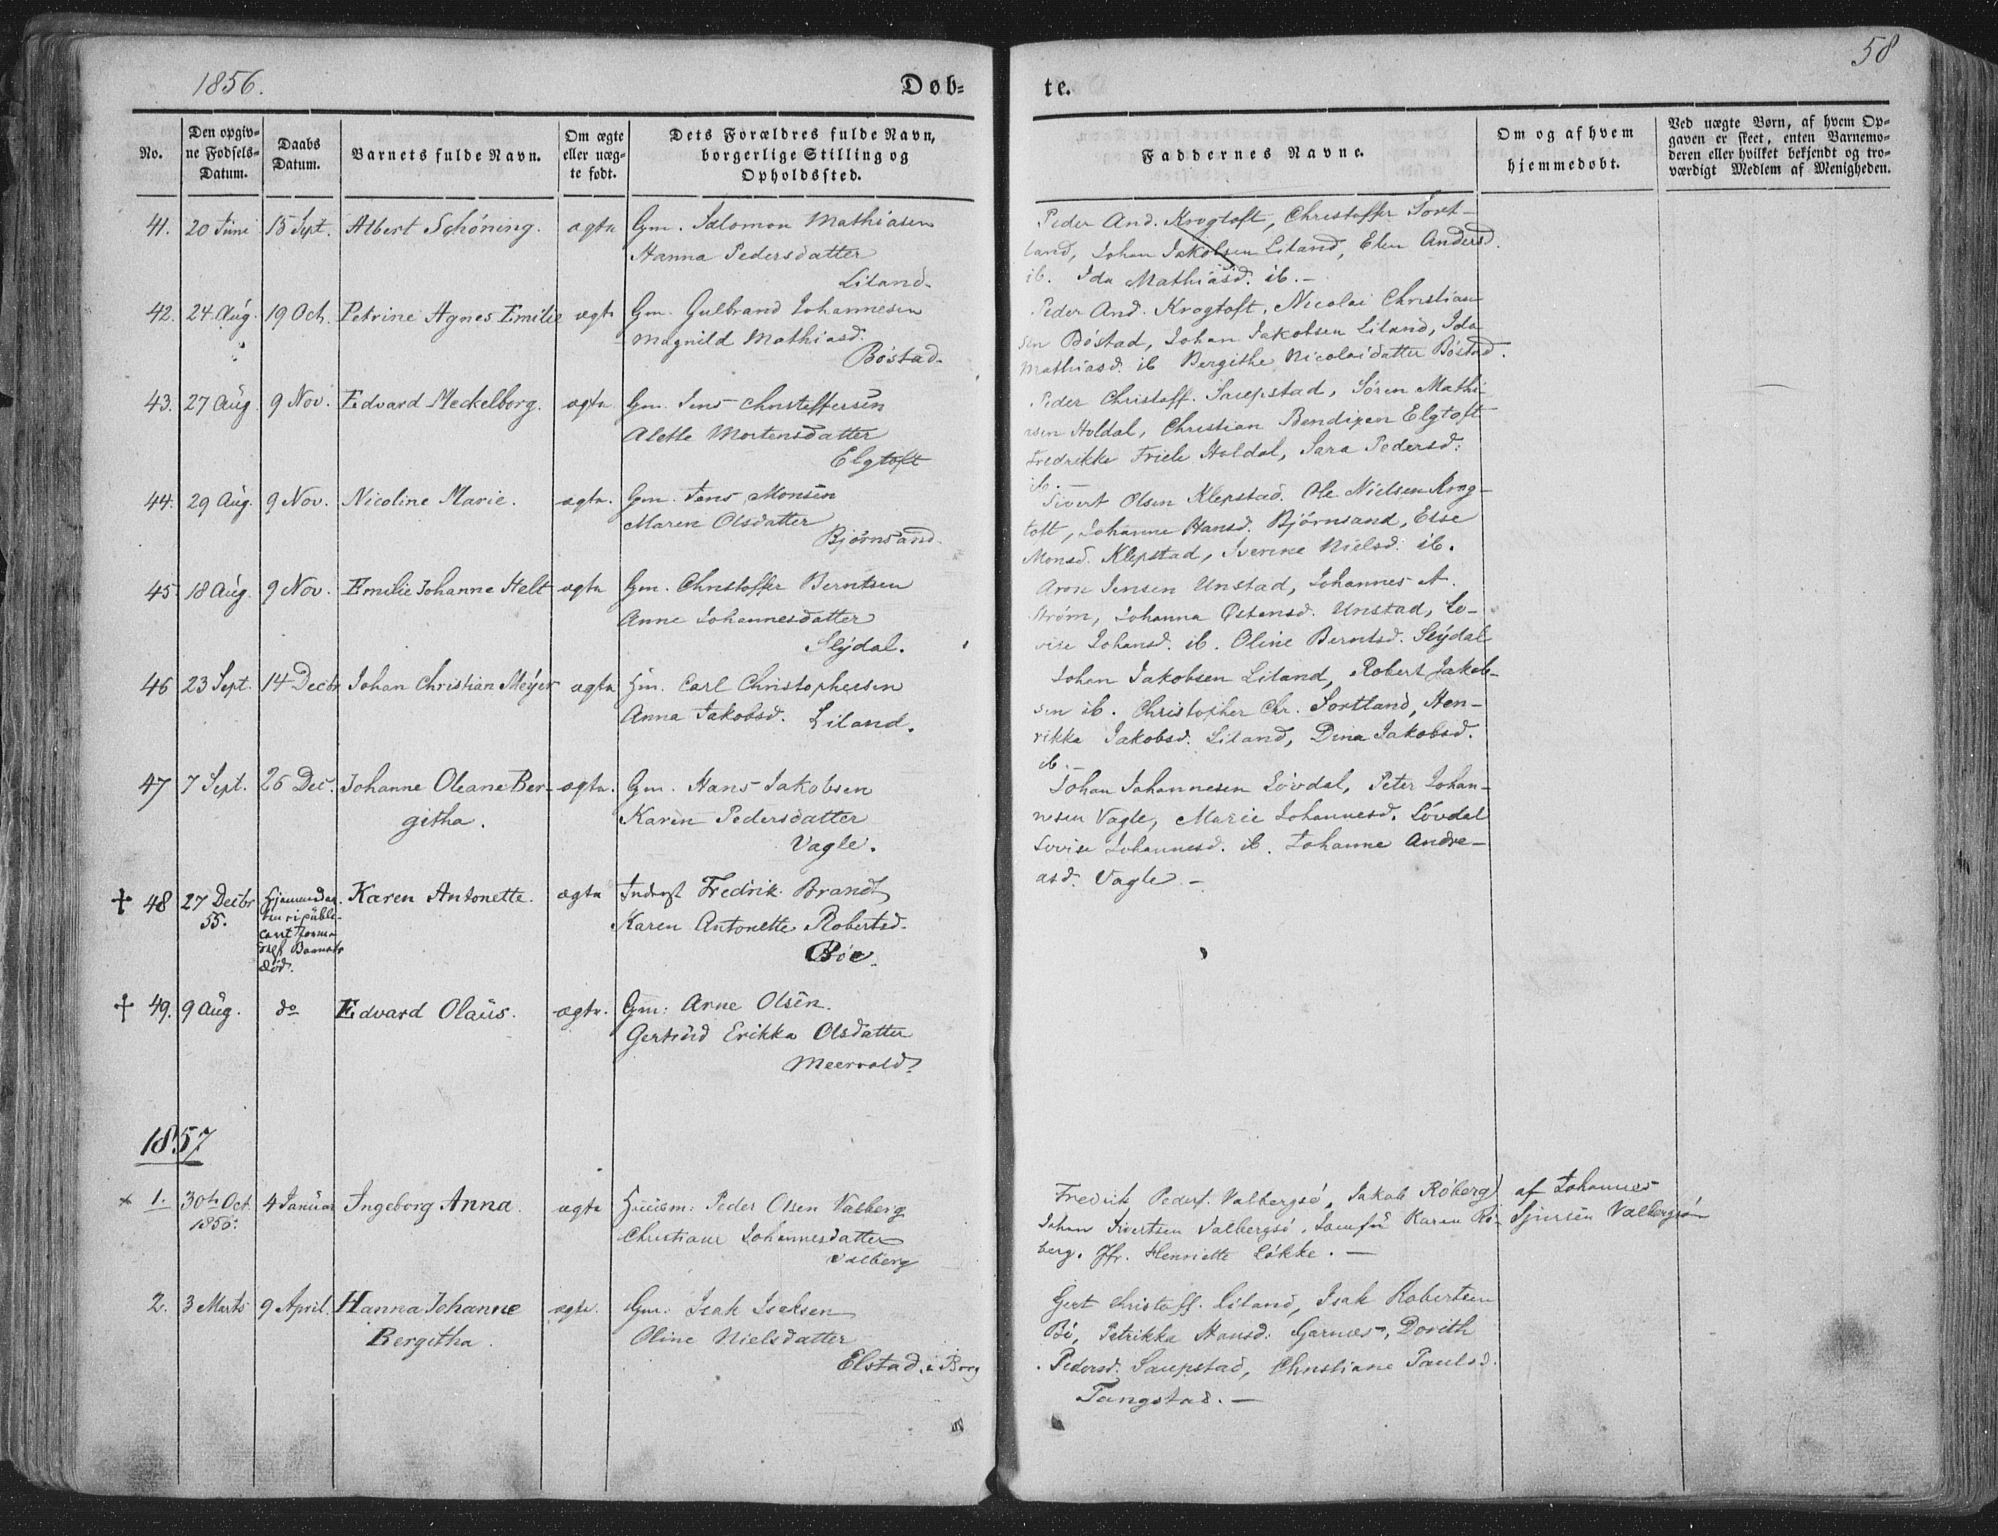 1856.
Døb-
te.
58
No.
Den opgiv-
ne Fødsels-
Datum.
Daabs
Datum.
Barnets fulde Navn.
Om ægte
eller uæg-
te født.
Dets Forældres fulde Navn,
borgerlige Stilling og
Opholdssted.
Faddernes Navne.
Om og af hvem
hjemmedøbt.
Ved uægte Børn, af hvem Op-
gaven er skeet, enten Barnemo-
deren eller hvilket bekjendt og tro-
værdigt Medlem af Menigheden.
41. 20 Juni 15 Sept. Albert Schøning. ægte Gm. Salomon Mathiasen
Hanna Pedersdatter
Liland.
Peder And. Krogtoft, Christoffer Sort-
land, Johan Jakobsen Liland, Elen Andersd.
ib. Ida Mathiasd. ib. -
42. 24 Aug. 19 Oct. Petrine Agnes Emilie ægte Gm. Gulbrand Johannesen
Magnild Mathiasd.
Bøstad.
Peder And. Krogtoft, Nicolai Christian-
sen Bøstad, Johan Jakobsen Liland, Ida
Mathiasd. ib Bergithe Nicolaidatter Bøstad.
43. 27 Aug. 9 Nov. Edvard Meckelborg. ægte Gm. Jens Christoffersen
Alette Mortensdatter
Elgtoft
Peder Christoff. Saupstad, Søren Mathi-
sen Holdal, Christian Bendixen Elgtoft
Fredrikke Friele Holdal, Sara Pedersd:
ib. -
44. 29 Aug. 9 Nov. Nicoline Marie. ægte. Gm. Jens Monsen
Maren Olsdatter
Bjørnsand.
Sivert Olsen Klepstad. Ole Nielsen Krog-
toft, Johanne Hansd. Bjørnsand, Else
Monsd. Klepstad, Iverine Nielsd. ib.
45 18 Aug. 9 Nov. Emilie Johanne Helt ægte Gm. Christoffer Berntsen
Anne Johannesdatter
Slydal.
Aron Jensen Unstad, Johannes A.
Strøm, Johanna Østensd. Unstad, Lo-
vise Johansd. ib. Oline Berntsd. Slydal
46 23 Sept. 14 Decbr Johan Christian Meyer ægte Hm. Carl Christophersen
Anna Jakobsd. Liland.
Johan Jakobsen Liland, Robert Jakob-
sen ib. Christopher Chr. Sortland, Hen-
rikka Jakobsd. Liland, Dina Jakobsd.
ib. -
47 7 Sept. 26 Dec. Johanne Oleane Ber- ægte. Gm. Hans Jakobsen
githa.
Karen Pedersdatter
Vagle.
Johan Johannesen Løvdal, Peter Johan-
nesen Vagle, Marie Johannesd. Løvdal
Lovise Johannesd. ib. Johanne Andre-
asd. Vagle. -
+ 48 27 Decbr
55.
Karen Antonette. ægte Inderst Fredrik Brandt
Karen Antonette Robertsd.
Bøe.
Barnets
død.
+ 49. 9 Aug. do Edvard Olaus. ægte. Gm: Arne Olsen.
Gertrud Erikka Olsdatter
Meervold?
1857
x 1. 30te Oct.
1856.
4 Januar Ingeborg Anna. ægte Huusm: Peder Olsen Valberg
Christiane Johannesdatter
Valberg
Fredrik Peders. Valbergsø, Jakob Røberg,
Johan Sivertsen Valbergsø. Jomfru Karen Rø-
berg. Jfr. Henriette Løkke. -
af Johannes
Sjursen Valbergsøn
2. 3 Marts 9 April. Hanna Johanne ægte. Gm: Isak Isaksen
Bergitha.
Oline Nielsdatter
Elstad i Borg
Gert Christoff. Liland, Isak Robertsen
Bø, Petrikka Hansd: Garnes, Dorith
Pedersd. Saupstad, Christiane Paulsd.
Tangstad. -